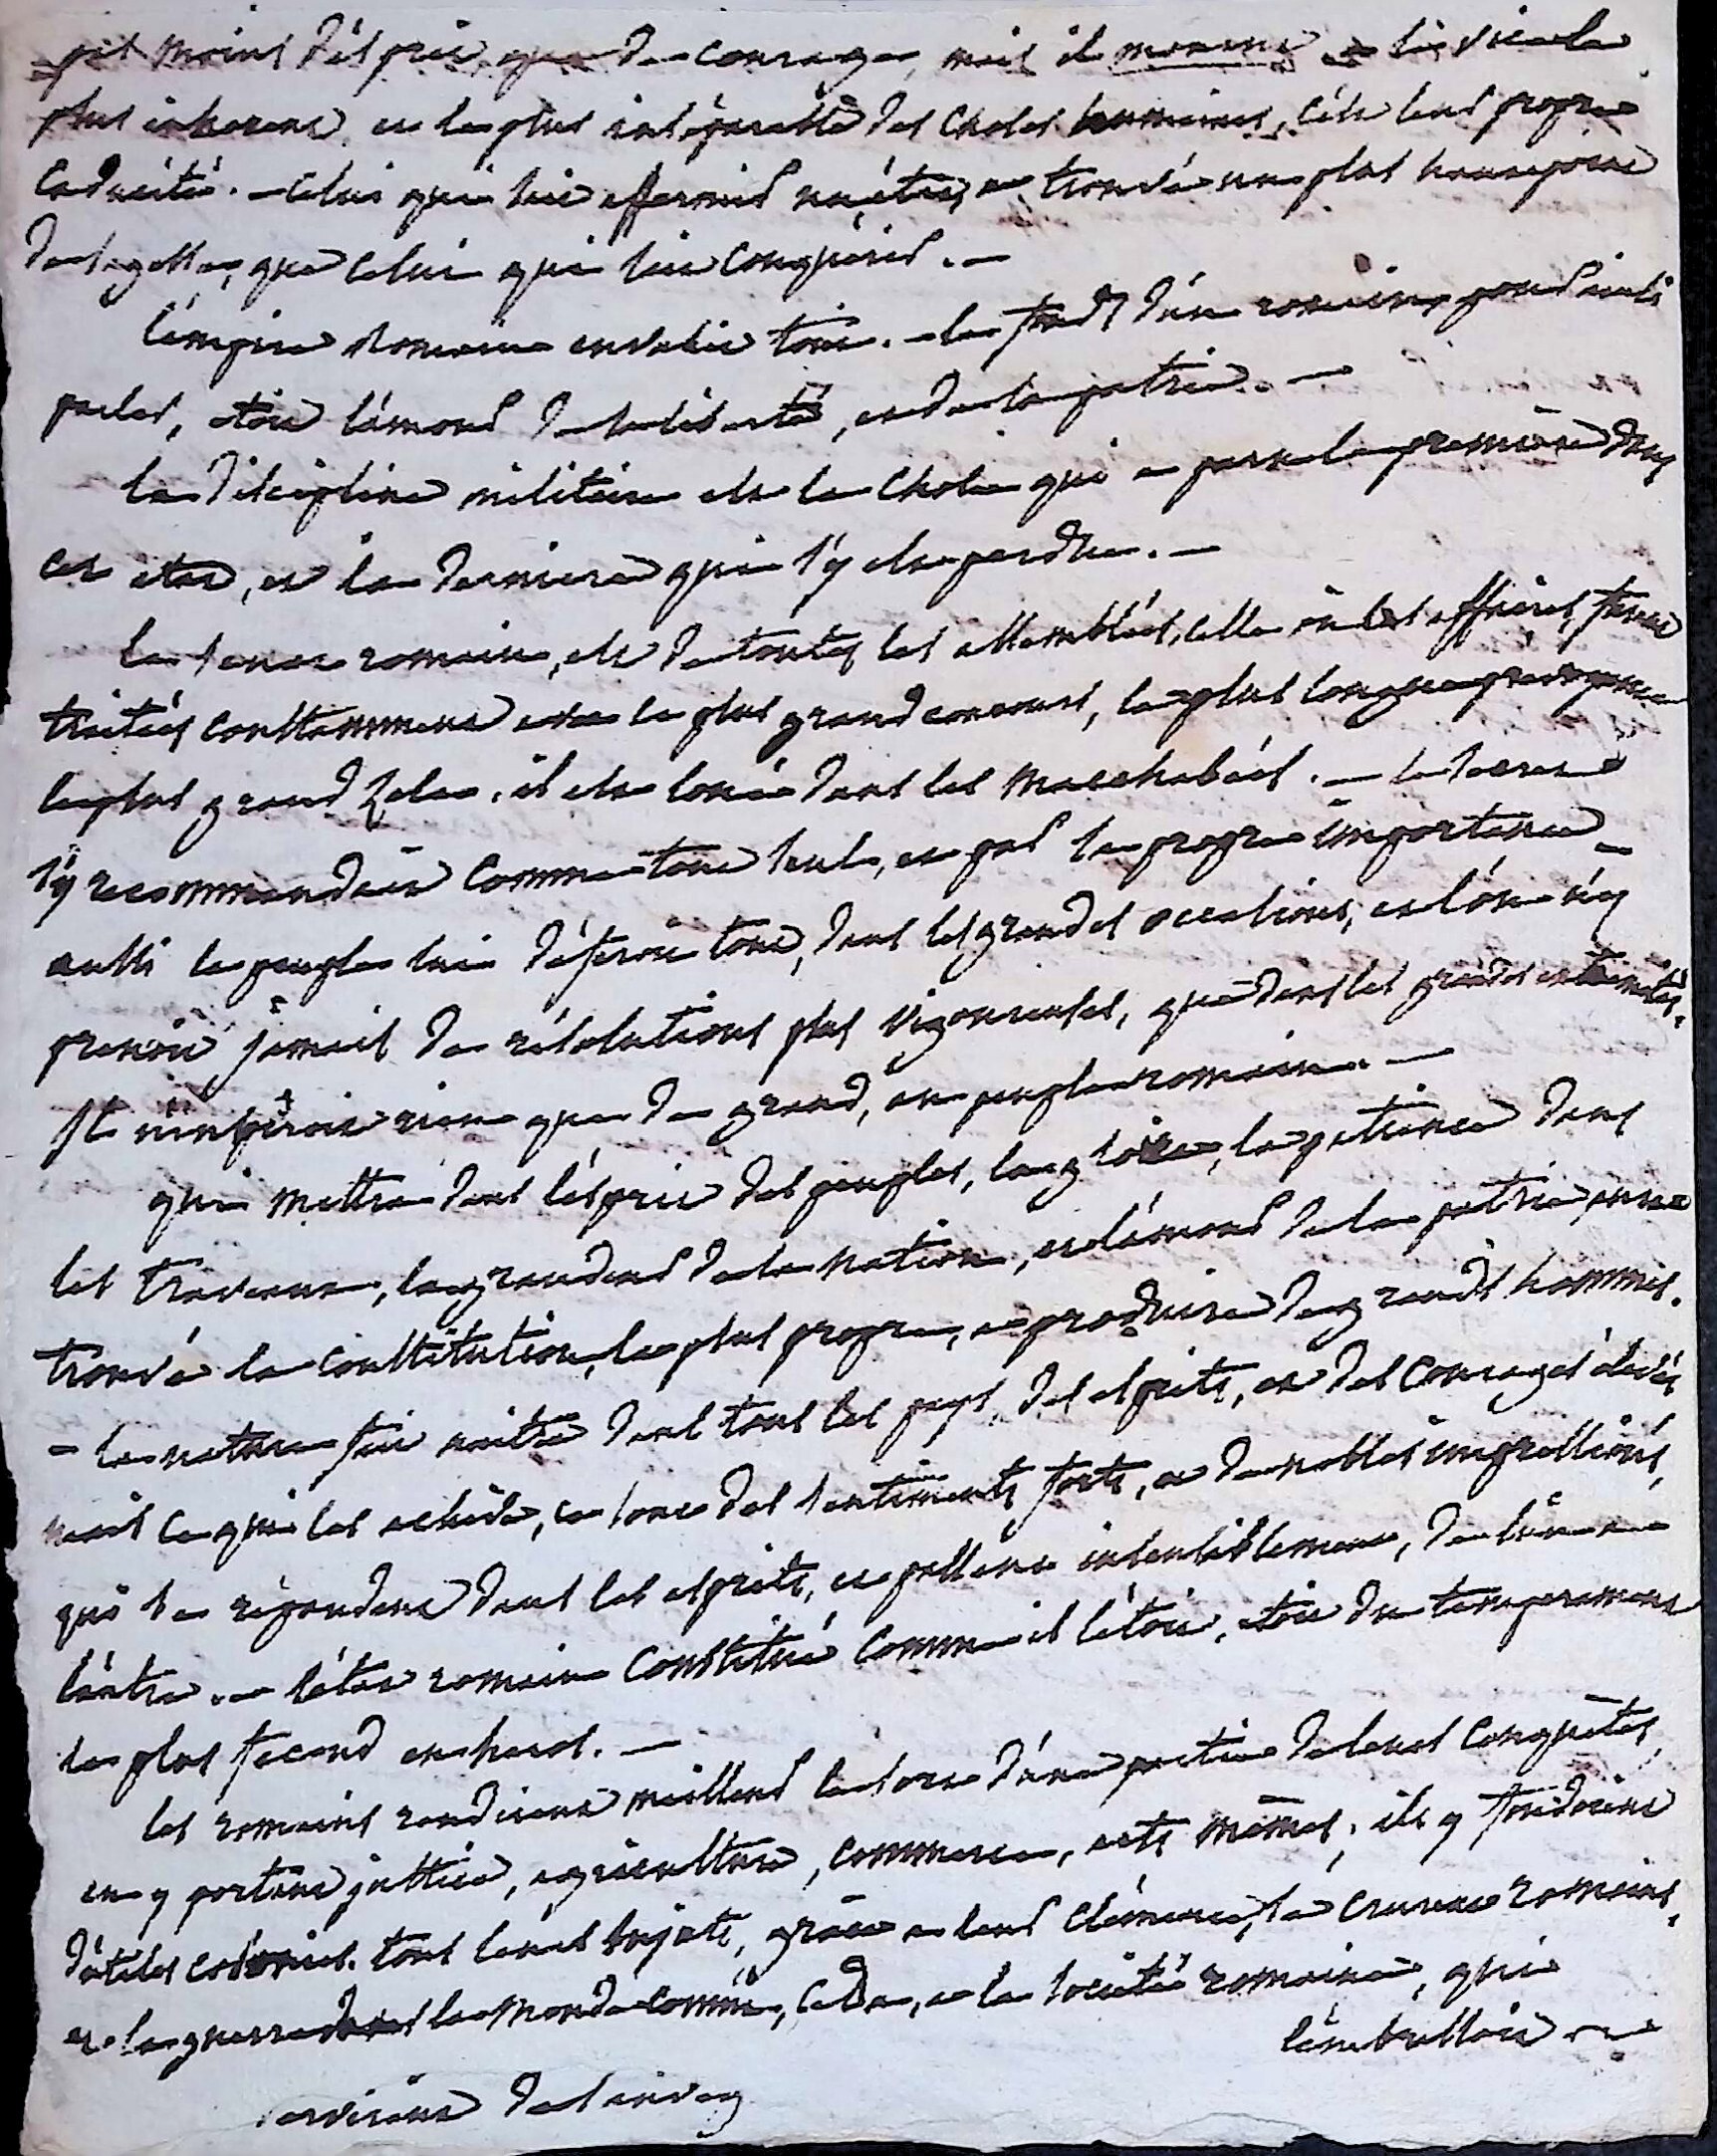 pas moins d'esprit, que de courage, mais il manque a le vice le
plus inherent, et le plus inséparable des choses humaines, c'est leur propre
caducité. – celui qui sut affermir un état, a trouvé un plus haut point
de sagesse, que celui qui sut conquérir. –
l'empire romain envahit tout. – le fond d'un romain, pour ainsi
parler, étoit l'amour de sa liberté, et de sa patrie. –
la discipline militaire est la chose qui a paru la première dans
cet état, et la dernière qui s'y est perdue. –
le senat romain, est de toutes les assemblées, celle où les affaires furent
traitées constamment avec le plus grand concours, la plus longue prévoyance
le plus grand zele. il est loué dans les macchabées. – le secret
s'y recommandoit comme tout seul, et par sa propre importance –
aussi le peuple lui déferoit tout, dans les grandes occasions, et l'on n'y
prenoit jamais de résolutions plus vigoureuses, que dans les grandes extrémités.
Il n'inspiroit rien que de grand, au peuple romain. –
qui mettra dans l'esprit des peuples, la gloire, la patience dans
les travaux, la grandeur de la nation, et l'amour de la patrie, aura
trouvé la constitution, la plus propre, a produire de grands hommes.
– la nature fait naitre dans tous les pays, des esprits, et des courages élevés
mais ce qui les achève, ce sont des sentiments forts, et de nobles impressions,
qui se répandent dans les esprits, et passent insensiblement, de l'un a
l'autre. – l'état romain constitué comme il l'étoit, étoit du temperament
le plus fecond en heros. –
les romains rendirent meilleur le sort d'une partie de leurs conquêtes,
en y portant justice, agriculture, commerce, arts mêmes, ils y fondoient
d'utiles colonies. tous leurs sujets, grâce a leur clémence, se crurent romains,
et la guerre dans le monde connu, céda, a la société romaine, qui
l'embrassoit